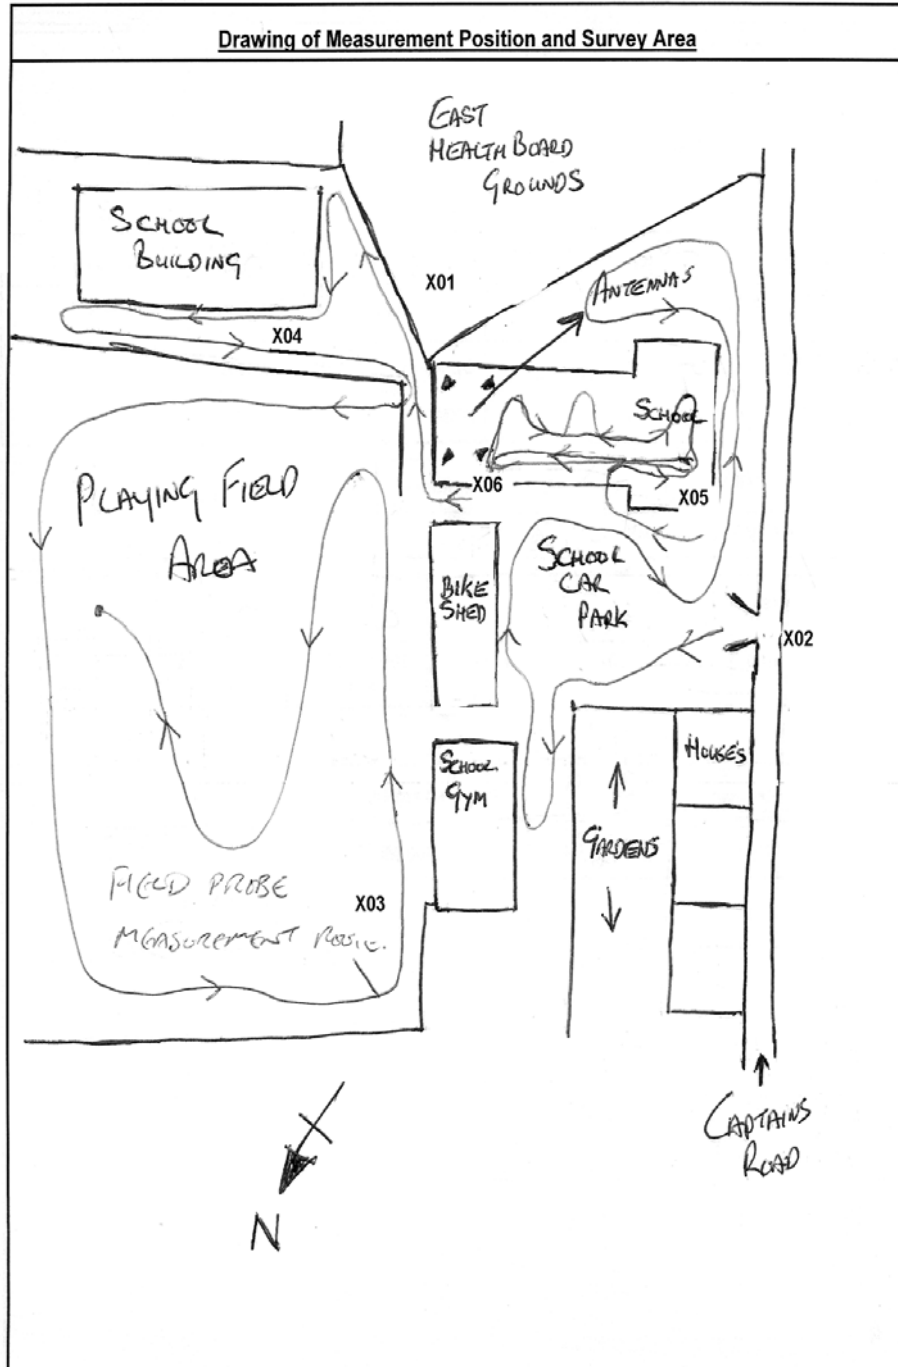 Drawing of Measurement Position and Survey Area
EAST
HEALTH BOARD
GROUNDS
SCHOOL
BUILDING
X01
ANTENNAS
X04
SCHOOL
PLAYING FIELD
AREA
X06
X05
SCHOOL
CAR
PARK
BIKE
SHED
X02
HOUSE'S
SCHOOL
GYM
GARDENS
FIELD PROBE
MEASUREMENT ROUTE.
X03
CAPTAINS
ROAD
N